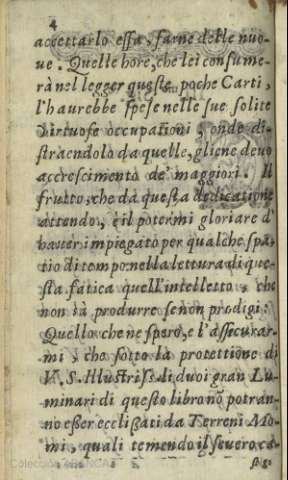 4
accettarlo essa, farne delle nuo-
ue. Quelle hore, che lei consume-
rà nel legger queste poche Carti,
l'haurebbe spese nelle sue solite
virtuose occupationi, onde di-
straendolo da quelle, gliene deuo
accrescimento de' maggiori. Il
frutto, che da questa dedicatione
attendo, è il potermi gloriare d'
hauer impiegato per qualche spa-
tio di tempo nella lettura di que-
sta fatica quell'intelletto, che
non sà produrre se non prodigi.
Quello che ne spero, e l'assecurar-
mi, che sotto la protettione di
V. S. Illustriss. di duoi gran Lu-
minari di questo libro nõ potran-
no esser ecclissati da Terreni Mo-
mi, quali temendo il seuero ca-